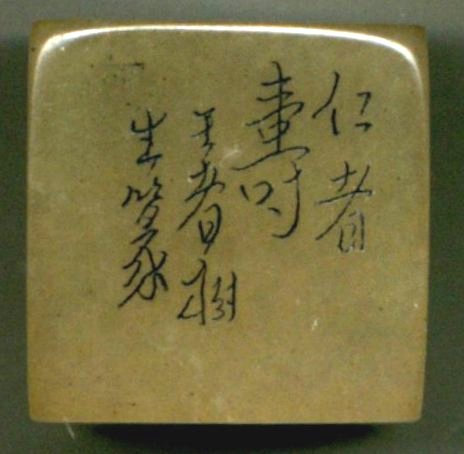 仁者
壽
王者樹
生篆